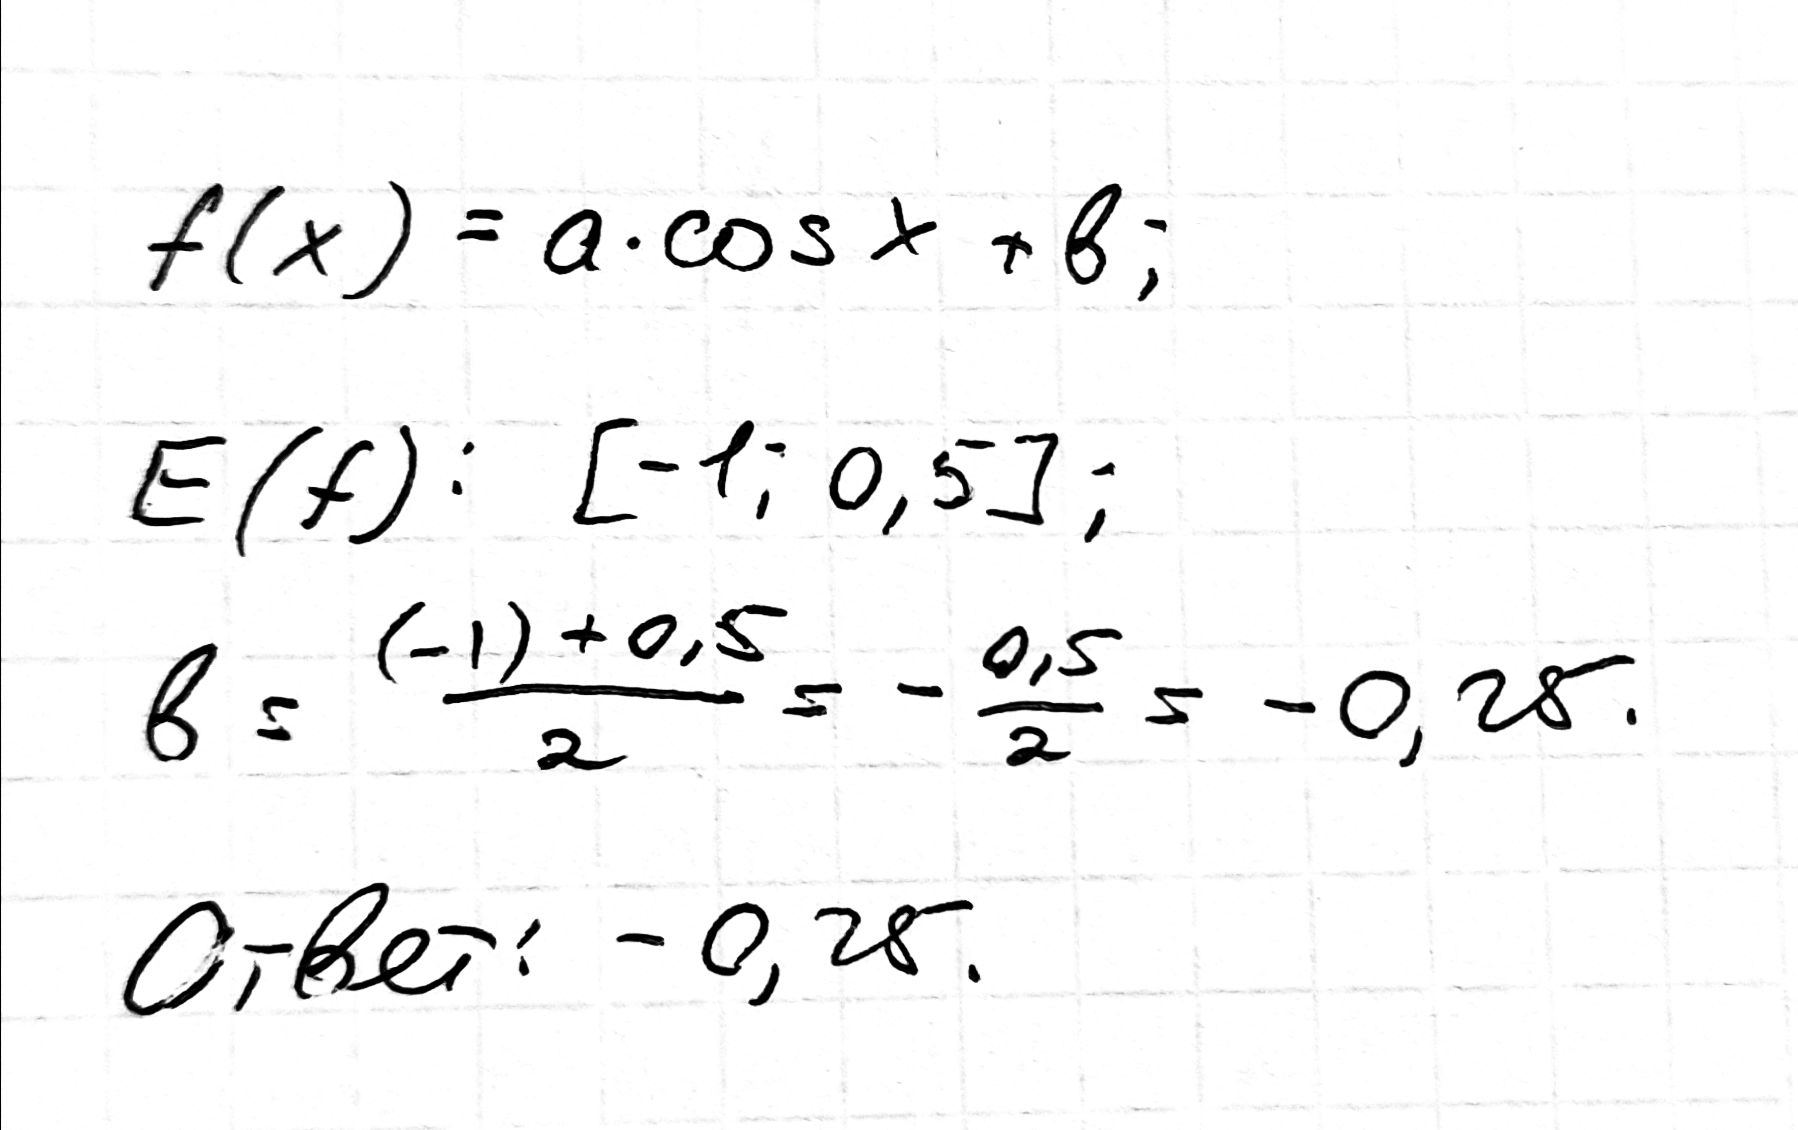 f(x) = a·cos x + b;
E(f): [-1; 0,5];
b = \frac{(-1) + 0,5}{2} = - \frac{0,5}{2} = -0,25.
Ответ: -0,25.